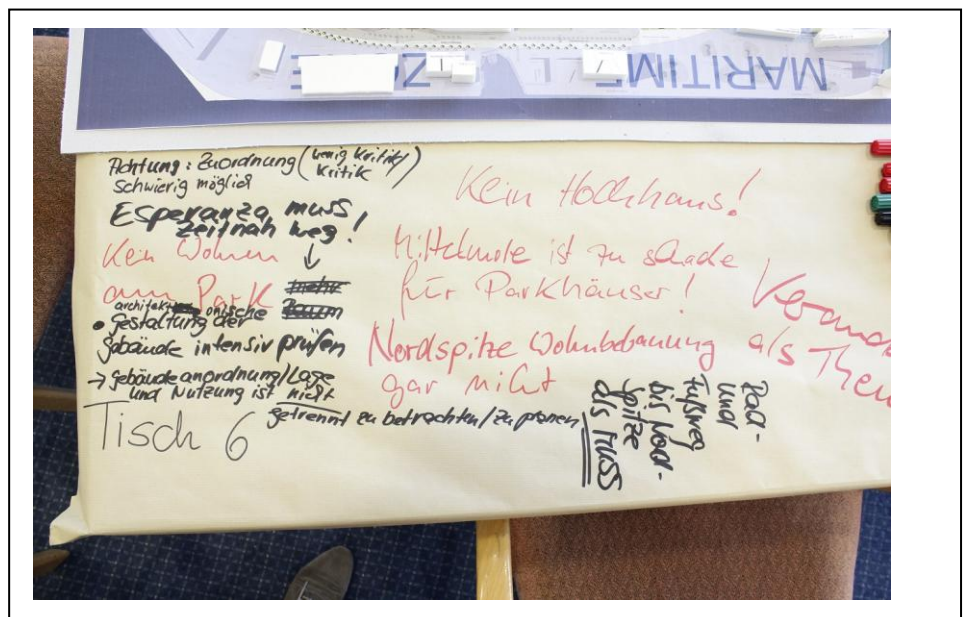 MARITIME
Achtung: Zuordnung (wenig Kritik/
Kritik)
schwierig möglich
Esperanza muss
zeitnah weg!
Kein Wohnen
am Park
architektonische
• Gestaltung der
Gebäude intensiv prüfen
→ Gebäudeanordnung/Lage
und Nutzung ist nicht
getrennt zu betrachten/zu planen
Tisch 6
Kein Hochhaus!
Mittelmole ist zu schade
für Parkhäuser!
Nordspitze Wohnbebauung
gar nicht
als
Rad-
und
Fußweg
bis Nord-
spitze
als Muss